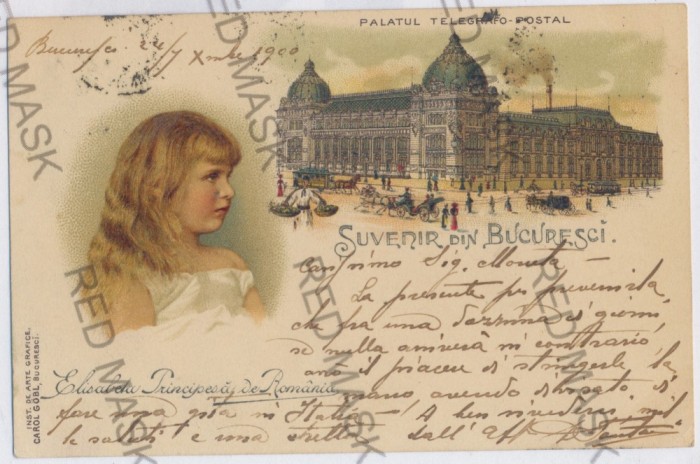 PALATUL TELEGRAFO-POSTAL
Bucuresci 22/7 Xmbre 1900
SUVENIR DIN BUCURESCI.
Carissimo Sig. Moneta
La presente per prevenirla,
che fra una dozzina di giorni,
se nulla arriverà in contrario,
avrò il piacere di stringerle la
mano, avendo di
fare una gita in Italia. A ben rivederci, mille
saluti e una stretta dall' Aff
Elisabeta Principesă de România
INST. DE ARTE GRAFICE,
CAROL GÖBL, BUCURESCI.
RED MASK
RED MASK
RED MASK
RED MASK
RED MASK
RED MASK
RED MASK
RED MASK
RED MASK